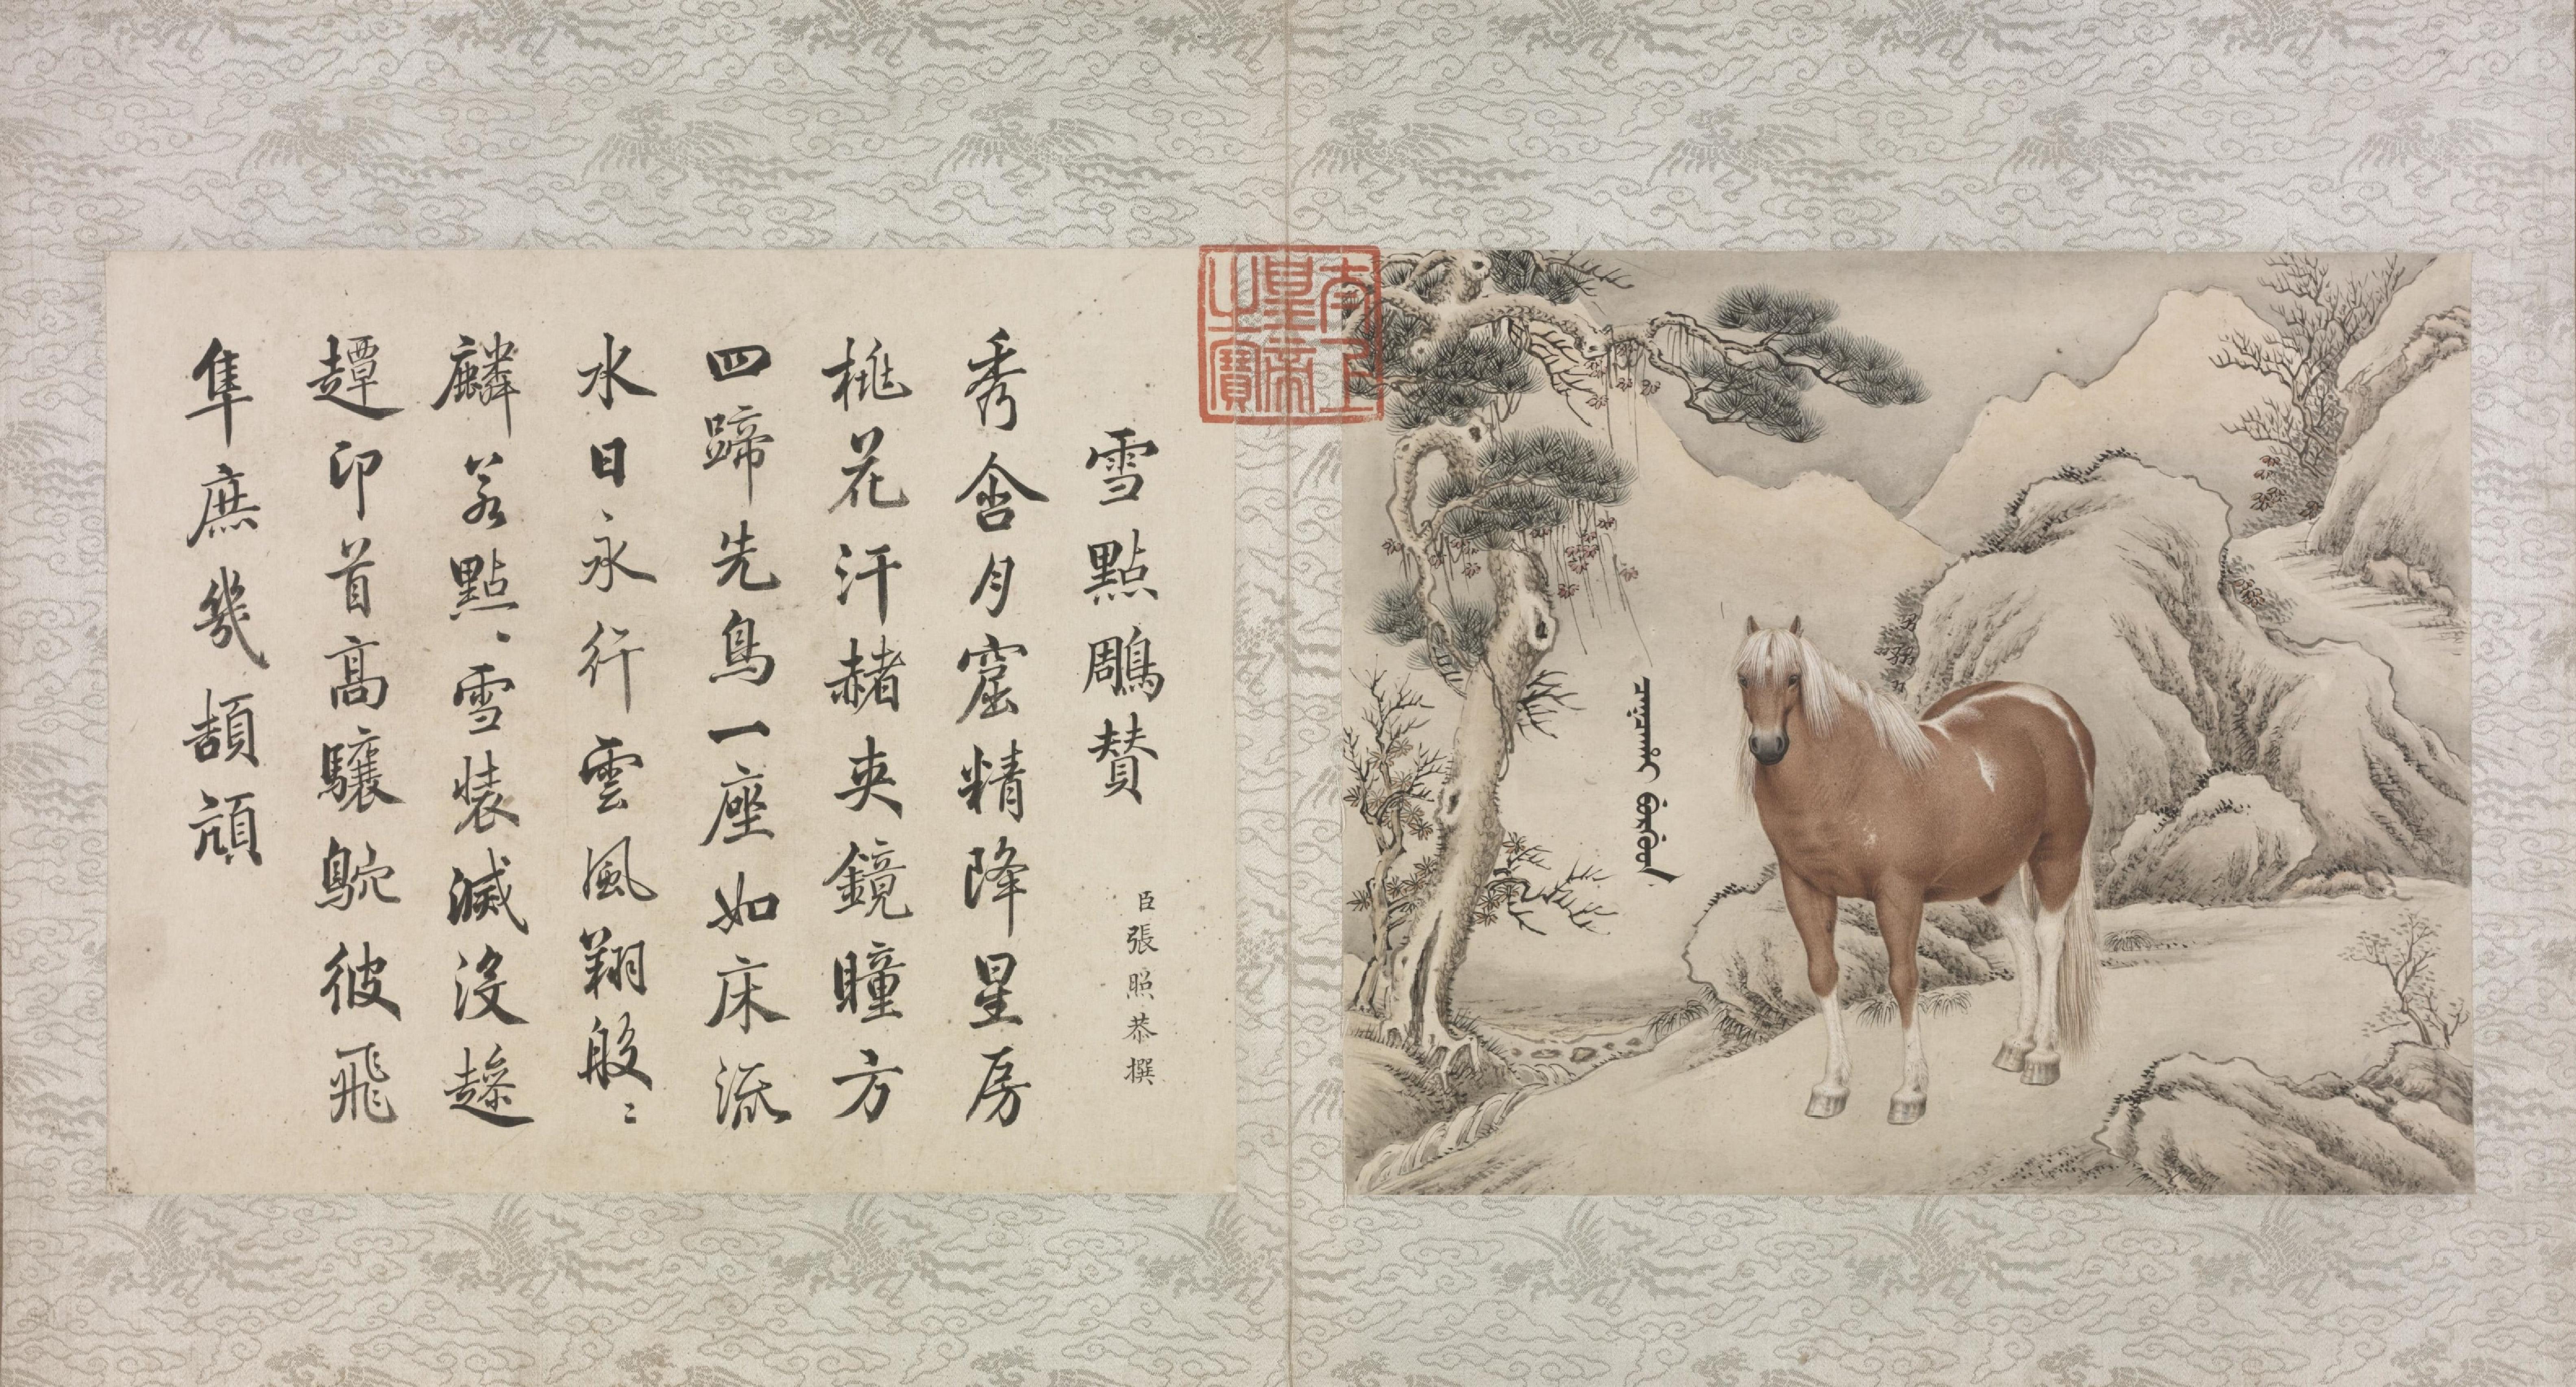 雪點鵰贊
臣張照恭撰
秀含月窟精降星房
桃花汗赭夾鏡瞳方
四蹄先鳥一座如床流
水日永行雲風翔般〻
麟若點〻雪裝滅沒趮
趯印首高驤鴥彼飛
隼庶幾頡頏
太上
皇帝
之寶